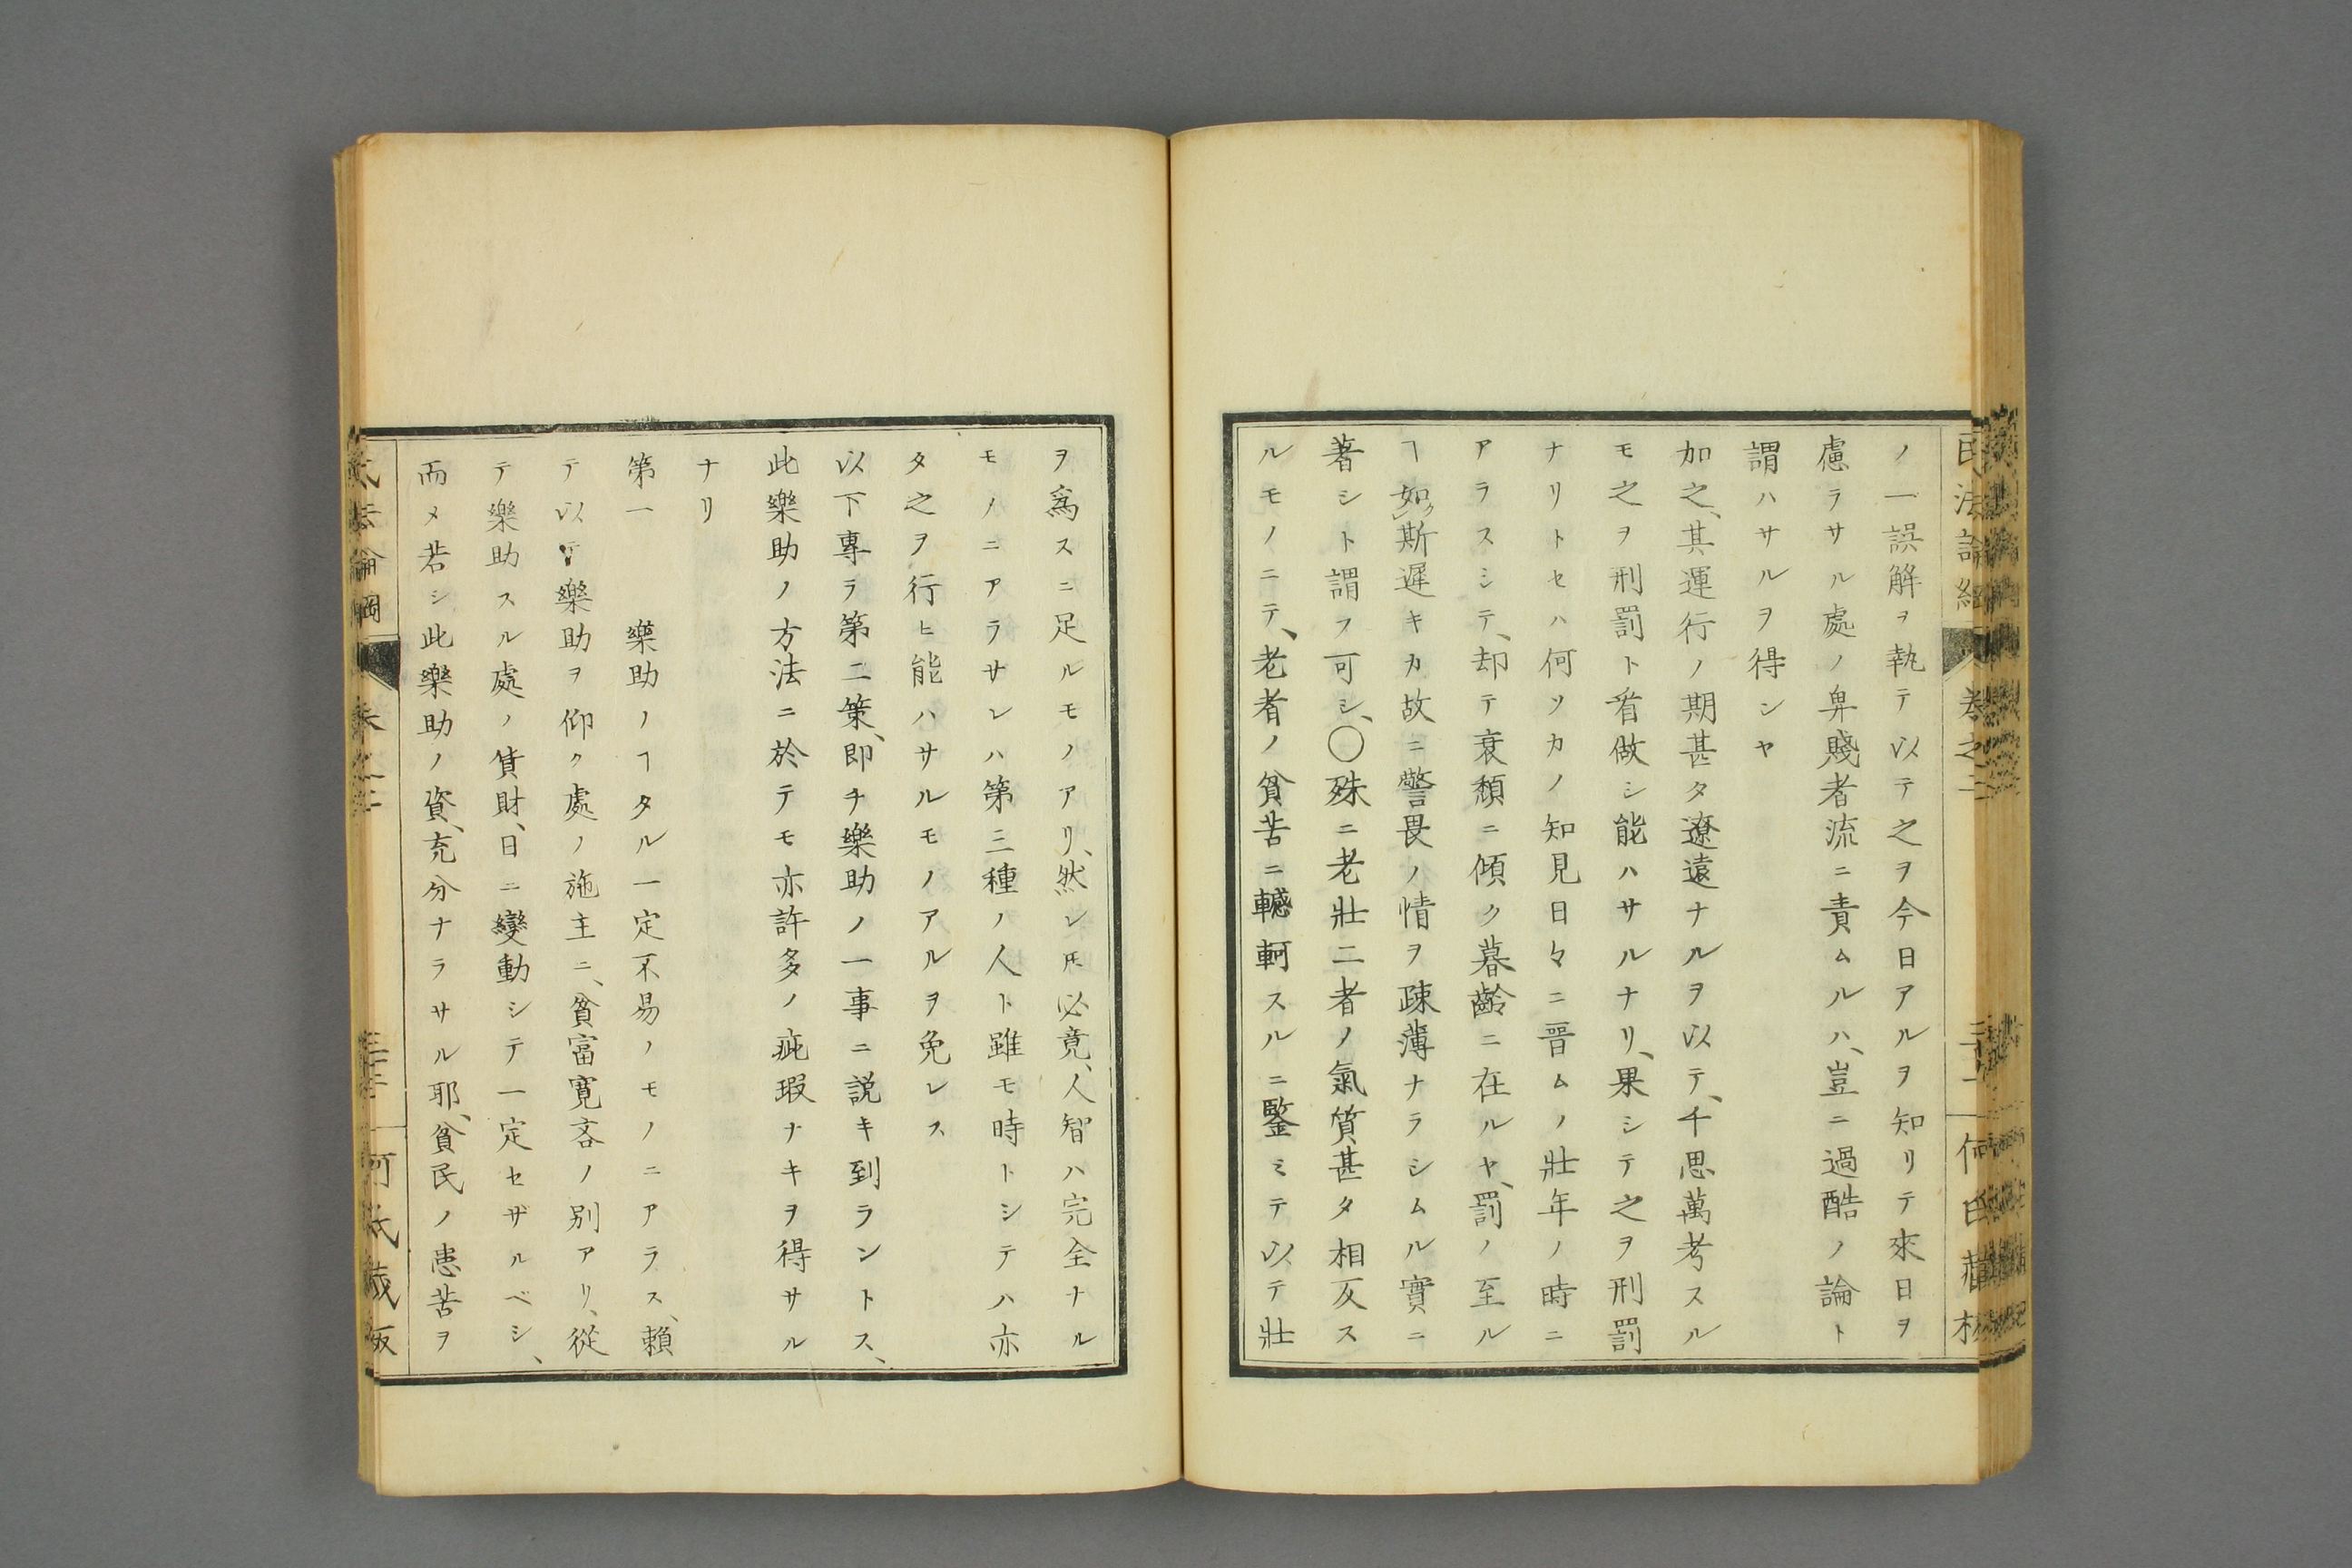 ノ一誤解ヲ執テ以テ之ヲ今日アルヲ知リテ來日ヲ
慮ラサル處ノ卑賤者流ニ責ムルハ、豈ニ過酷ノ論ト
謂ハサルヲ得ンヤ
加之、其運行ノ期甚タ遼遠ナルヲ以テ、千思萬考スル
モ之ヲ刑罰ト看做シ能ハサルナリ、果シテ之ヲ刑罰
ナリトセハ何ソカノ知見日々ニ晋ムノ壯年ノ時ニ
アラスシテ、却テ衰頽ニ傾ク暮齡ニ在ルヤ、罰ノ至ル
ヿ如ク斯遲キカ故ニ警畏ノ情ヲ疎薄ナラシムル實ニ
著シト謂フ可シ、〇殊ニ老壯二者ノ氣質甚タ相反ス
ルモノニテ、老者ノ貧苦ニ轗軻スルニ鑒ミテ以テ壯
ヲ爲スニ足ルモノアリ、然レ𪜈必竟、人智ハ完全ナル
モノニアラサレハ第三種ノ人ト雖モ時トシテハ亦
タ之ヲ行ヒ能ハサルモノアルヲ免レス
以下專ラ第二策、即チ樂助ノ一事ニ説キ到ラントス、
此樂助ノ方法ニ於テモ亦許多ノ疵瑕ナキヲ得サル
ナリ
第一　樂助ノヿタル一定不易ノモノニアラス、賴
テ以テ樂助ヲ仰ク處ノ施主ニ、貧富寛吝ノ別アリ、從
テ樂助スル處ノ貨財、日ニ變動シテ一定セザルベシ、
而メ若シ此樂助ノ資、充分ナラサル耶、貧民ノ患苦ヲ